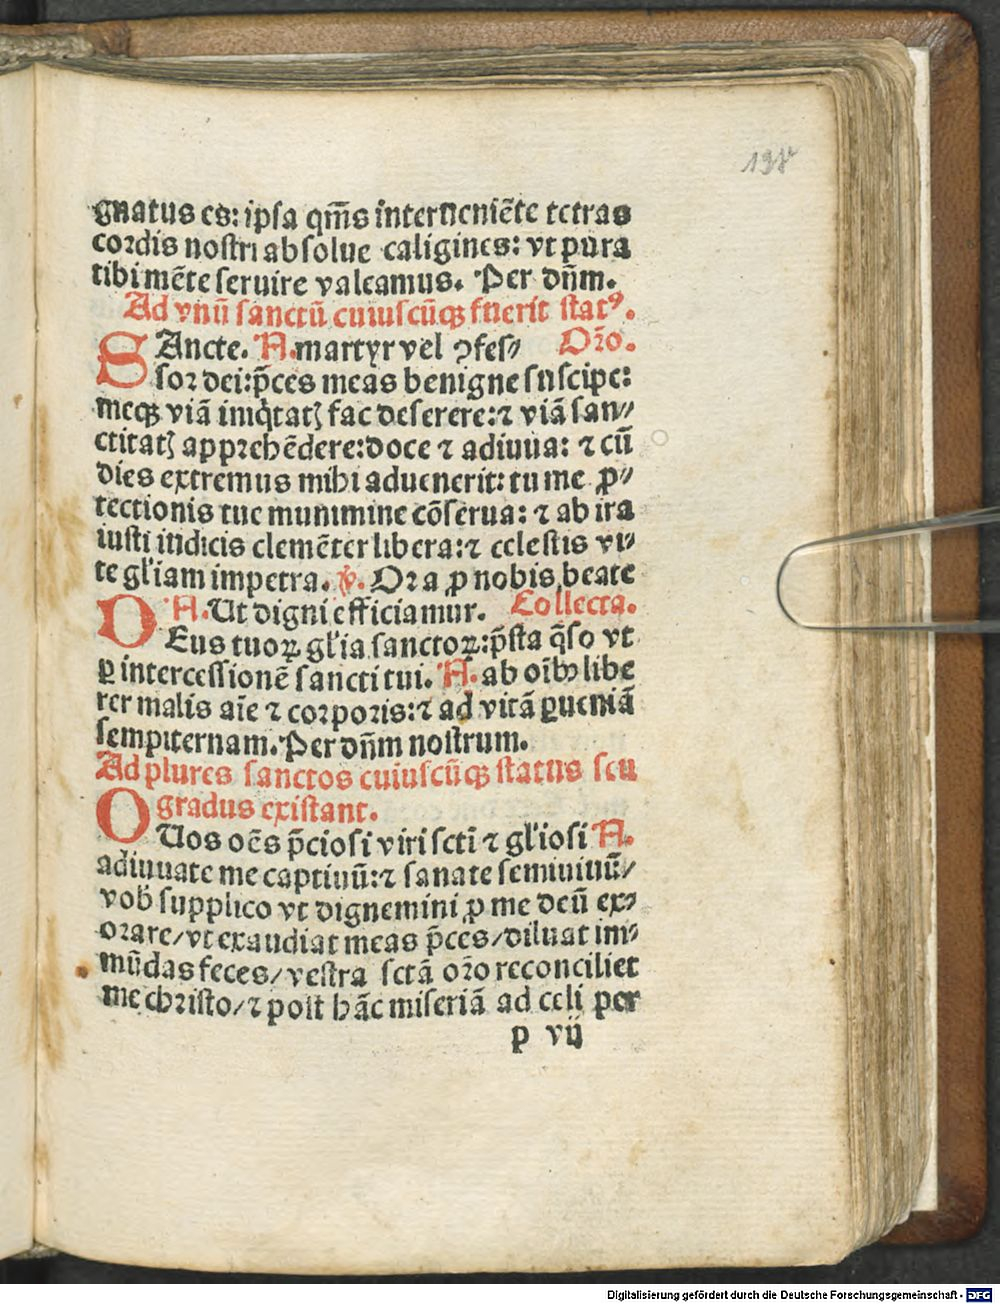 138
gnatus es: ipsa qm̄s interueniēte tetras
cordis nostri absolue caligines: vt pura
tibi mēte seruire valeamus. Per dn̄m.
Ad vnū sanctū cuiuscūqꝫ fuerit statꝰ.
SAncte. N. martyr vel ꝯfes⸗ Oro.
sor dei: p̄ces meas benigne suscipe:
meqꝫ viā iniq̇tatꝭ fac deserere: ⁊ viā san⸗
ctitatꝭ apprehēdere: doce ⁊ adiuua: ⁊ cū
dies extremus mihi aduenerit: tu me ꝓ⸗
tectionis tue munimine cōserua: ⁊ ab ira
iusti iudicis clemēter libera: ⁊ celestis vi⸗
te gl̓iam impetra. ℣. Ora ꝓ nobis beate
N. Ut digni efficiamur. Collecta.
DEus tuoꝝ gl̓ia sanctoꝝ: p̄sta q̄so vt
ꝑ intercessionē sancti tui. N. ab oībꝫ libe
rer malis aīe ⁊ corporis: ⁊ ad vitā ꝑueniā
sempiternam. Per dn̄m nostrum.
Ad plures sanctos cuiuscūqꝫ status seu
gradus existant.
O Uos oēs p̄ciosi viri sctī ⁊ gl̓iosi N.
adiuuate me captiuū: ⁊ sanate semiuiuū/
vob̓ supplico vt dignemini ꝓ me deū ex⸗
orare/ vt exaudiat meas p̄ces/ diluat im⸗
mūdas feces/ vestra sctā oro reconciliet
me christo/ ⁊ post hāc miseriā ad celi per
p vij
Digitalisierung gefördert durch die Deutsche Forschungsgemeinschaft - DFG